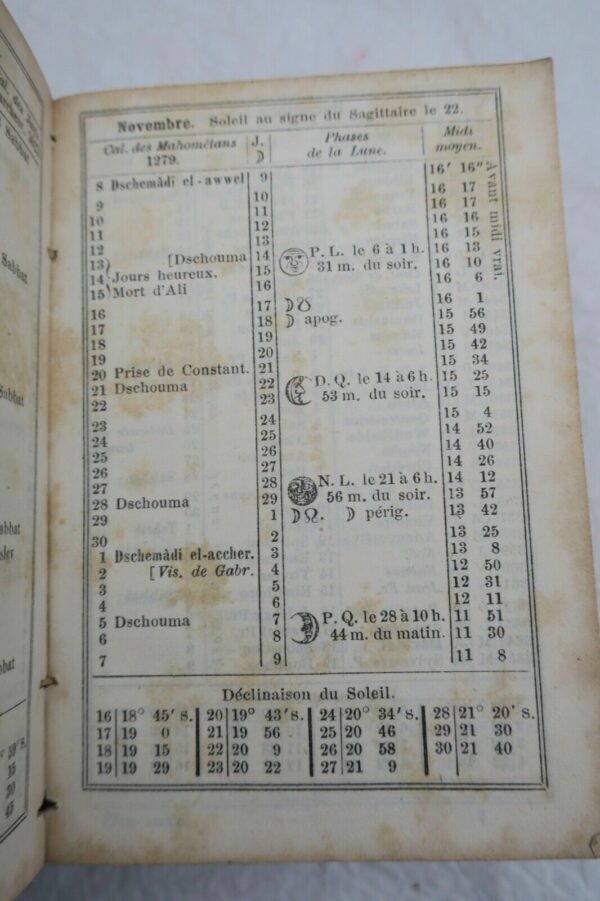 Sabbat
Sabbat
Sabbat
bbat
slev
bbat
Novembre. Soleil au signe du Sagittaire le 22.
Cal. des Mahométans 1279. J. ☽ Phases de la Lune. Midi moyen.
Avant midi vrai.
8 Dschemàdi el-awwel 9 16′ 16″
9 10 16 17
10 11 16 17
11 12 16 16
12 13 16 15
13) [Dschouma 14 P. L. le 6 à 1 h. 16 13
14 Jours heureux. 15 31 m. du soir. 16 10
15) Mort d'Ali 16 16 6
16 17 ☽☋ 16 1
17 18 ☽ apog. 15 56
18 19 15 49
19 20 15 42
20 Prise de Constant. 21 15 34
21 Dschouma 22 D. Q. le 14 à 6 h. 15 25
22 23 53 m. du soir. 15 15
23 24 15 4
24 25 14 52
25 26 14 40
26 27 14 26
27 28 N. L. le 21 à 6 h. 14 12
28 Dschouma 29 56 m. du soir. 13 57
29 1 ☽☊. ☽ périg. 13 42
30 2 13 25
1 Dschemàdi el-accher. 3 13 8
2 [Vis. de Gabr. 4 12 50
3 5 12 31
4 6 12 11
5 Dschouma 7 P. Q. le 28 à 10 h. 11 51
6 8 44 m. du matin. 11 30
7 9 11 8
Déclinaison du Soleil.
16 18° 45′ S. 20 19° 43′ S. 24 20° 34′ S. 28 21° 20′ S.
17 19 0 21 19 56 25 20 46 29 21 30
18 19 15 22 20 9 26 20 58 30 21 40
19 19 29 23 20 22 27 21 9